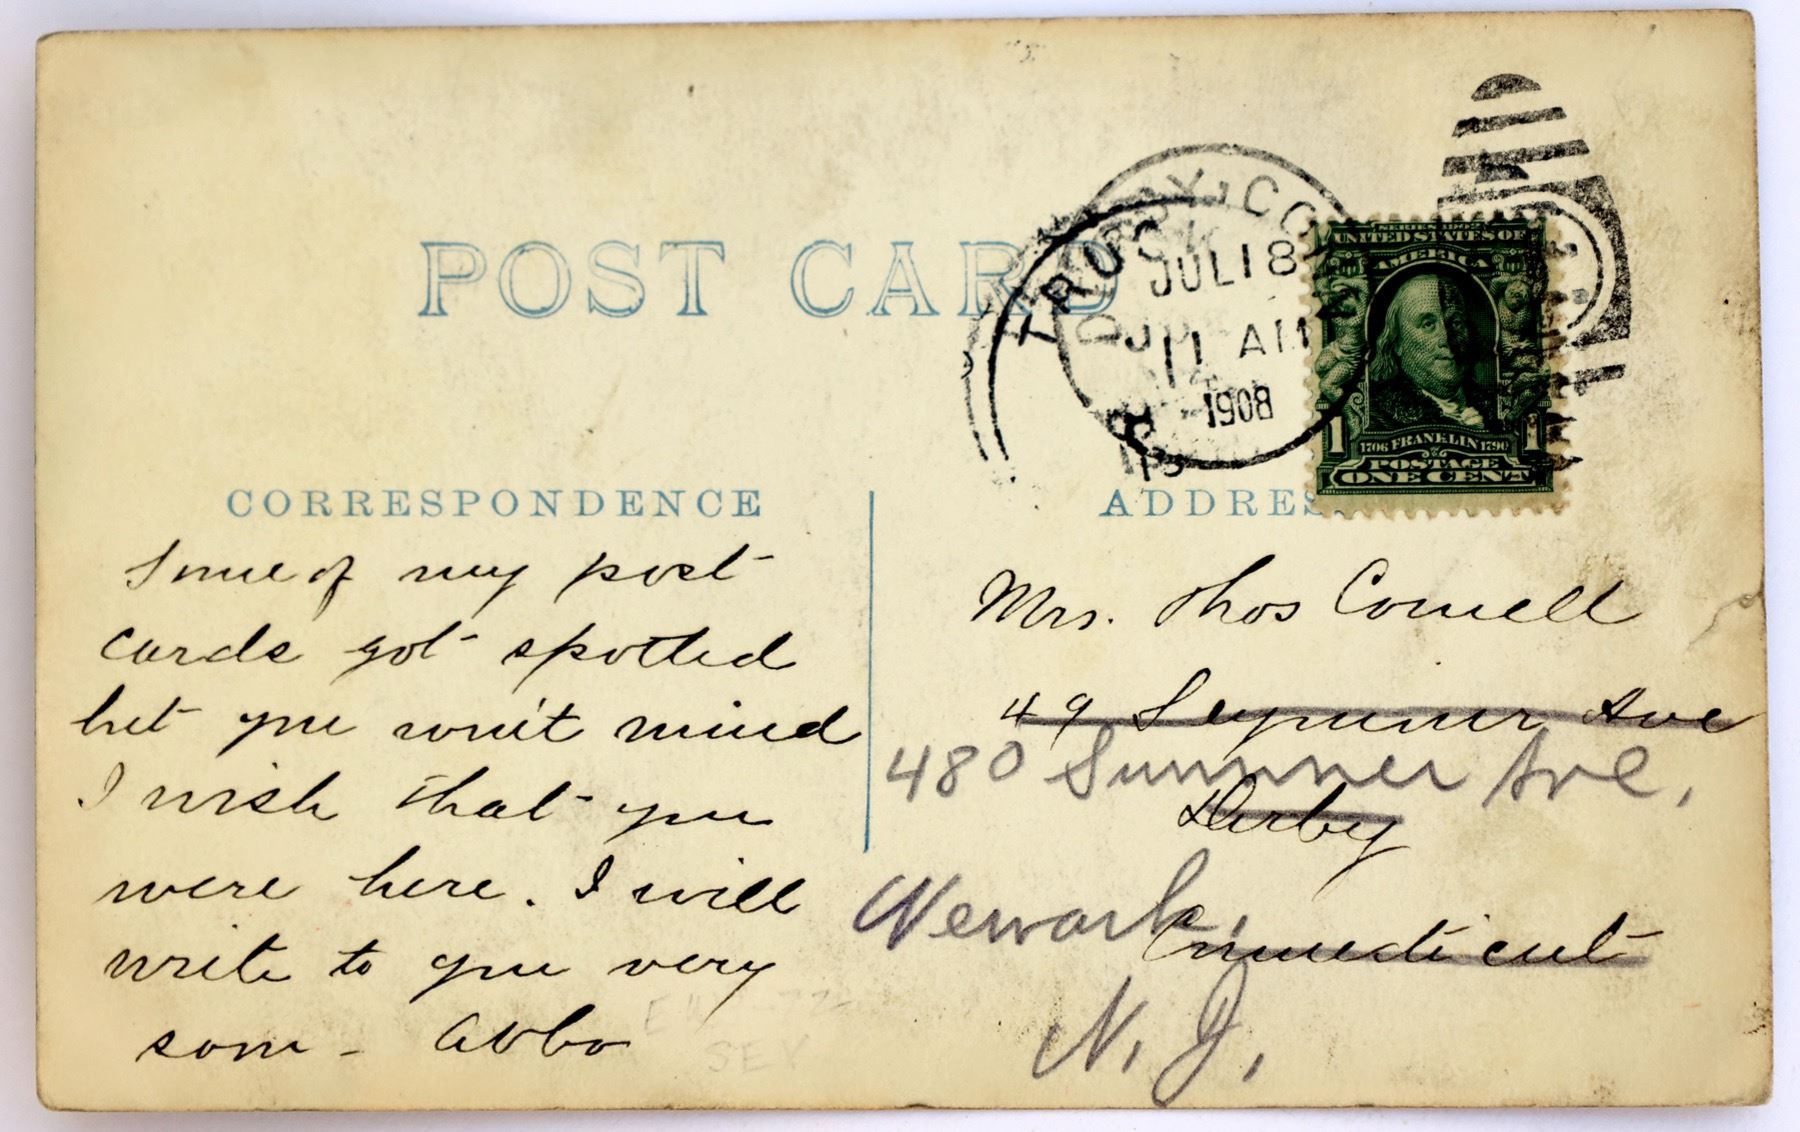 POST CARD
DERBY, CONN
JUL 18
11 AM
1908
TRURO
SERIES 1902
UNITED STATES OF
AMERICA
1 1
1706 FRANKLIN 1790
POSTAGE
ONE CENT
CORRESPONDENCE
Some of my post
cards got spotted
but you won't mind
I wish that you
were here. I will
write to you very
soon -
ADDRESS
Mrs. Thos Cornell
49 Seymour Ave
480 Summer Ave.
Derby
Newark,
Connecticut
N. J.
SEY